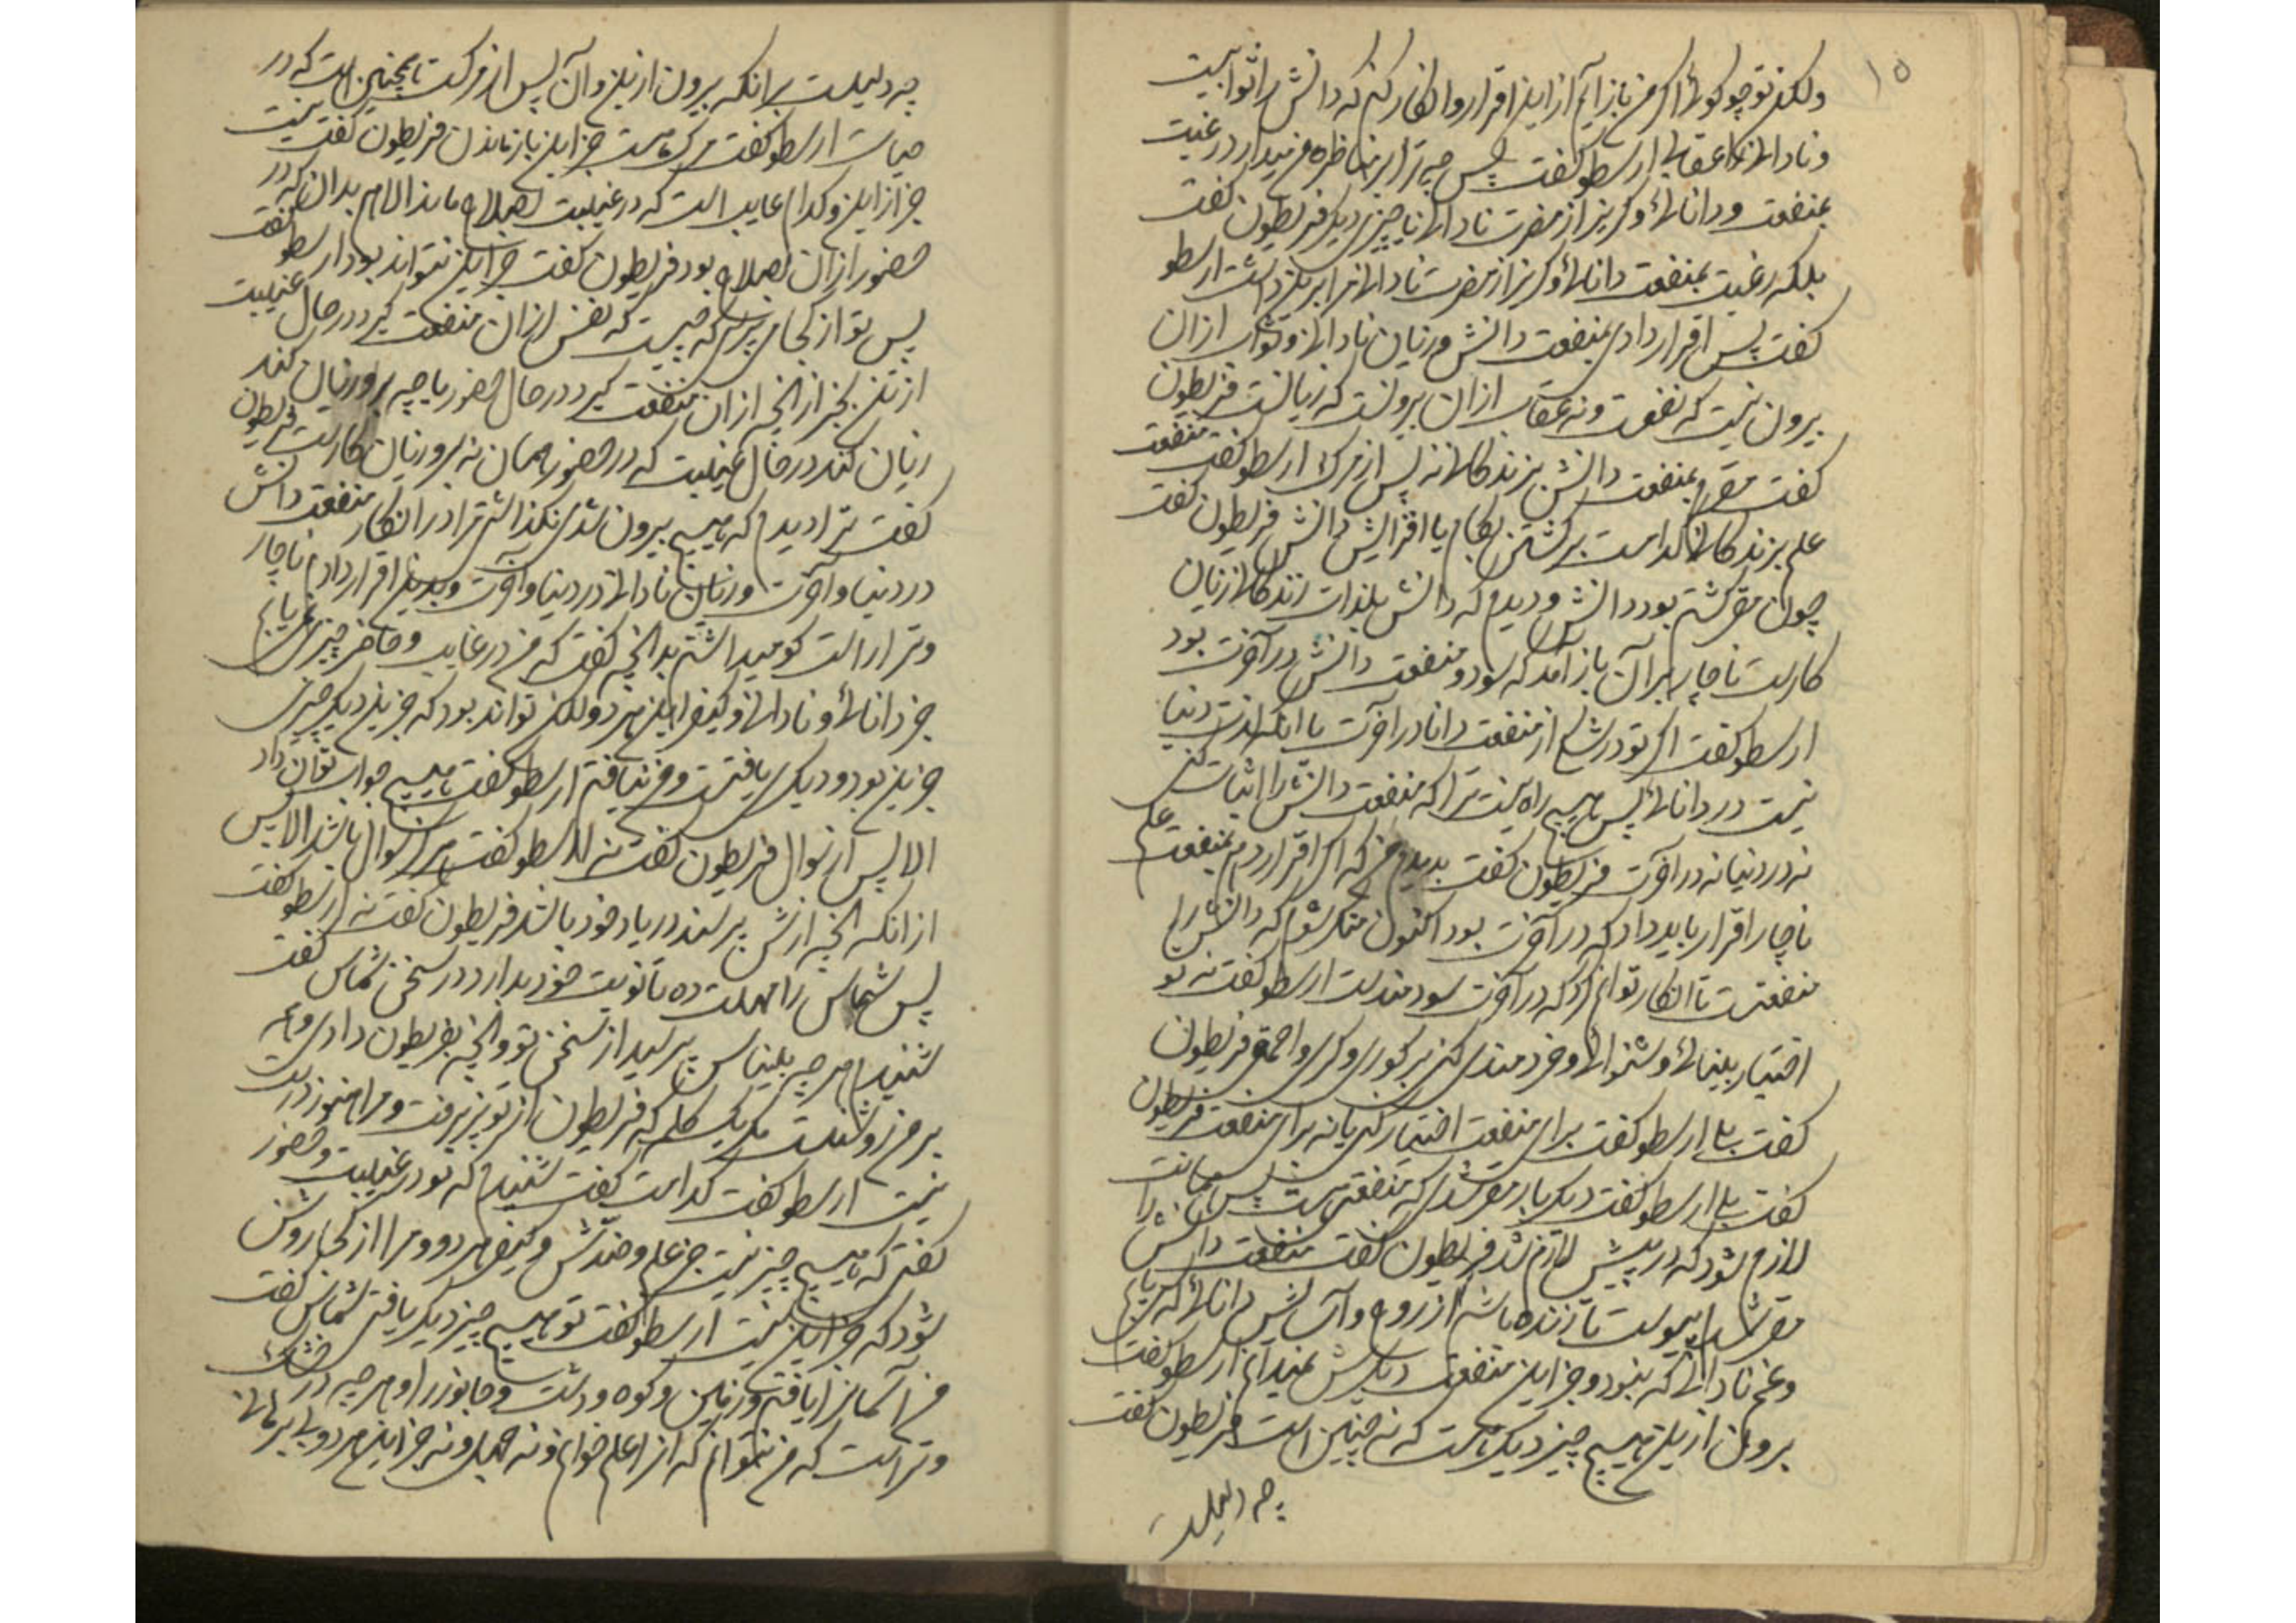 ۱۵
ولکن تو چه گوئی اگر من باز آیم از این اقرار و انکار کنم که دانش را ثوابیست
و نادانی را عقابی ارسطو گفت پس چه ترا برین مناظره میدارد رغبت
بمنفعت دانائی و گریز از مضرت نادانی یا چیزی دیگر فریطون گفت
بلکه رغبت بمنفعت دانائی و گریز از مضرت نادانی مرا برین داشت ارسطو
گفت پس اقرار دادی بمنفعت دانش و زیان نادانی و ثواب ازان
بیرون نیست که نفعست و نه عقاب ازان بیرونست که زیانست فریطون
گفت مقرم بمنفعت دانش بزندگانی نه پس از مرگ ارسطو گفت منفعت
علم بزندگانی کدامست برگشتن بکام یا افزایش دانش فریطون گفت
چون مقر گشته بودم دانش و دیدم که دانش بلذات زندگانی زیان
کارست ناچار بران باز آمد که سود و منفعت دانش در آخرت بود
ارسطو گفت اگر تو در شکی از منفعت دانا در آخرت با آنکه لذت دنیا
نیست در دانائی پس هیچ راه نیست ترا که منفعت دانش را اثبات کنی
نه در دنیا نه در آخرت فریطون گفت بدیدم من که اگر اقرار دهم بمنفعت علم
ناچار اقرار باید داد که در آخرت بود اکنون منکر شوم که دانش را
منفعتست تا انکار توانم کرد که در آخرت سودمندست ارسطو گفت نه تو
اختیار بینائی و شنوائی و خردمندی کنی بر کوری و کری و احمقی فریطون
گفت بلی ارسطو گفت برای منفعت اختیار کنی یا نه برای منفعت فریطون
گفت بلی ارسطو گفت دیگر بار مقر شدی که منفعتی هست پس همانت
لازم شود که در پیش لازم شد فریطون گفت منفعت دانش را
مقر شدم پیوست تا زنده باشم از روح و آسایش دانائی که یابم
و غم نادانی که نبود و جز این منفعت دیگرش نمیدانم ارسطو گفت
بیرون ازین هیچ چیز دیگر هست که نه چنین است فریطون گفت
چه دلیلست
چه دلیلست بر انکه بیرون ازین و آن پس از مرگست تا همچنین است که در
حیات ارسطو گفت مرگ هست جز این باز ماندن فریطون گفت نیست
جز از این و کدام غایب است که در غیبت بصلاح ماند الا هم بدان که در
حضور ازان بصلاح بود فریطون گفت جز این نتواند بود ارسطو گفت
پس تو از کجا می پرسی که چیست که نفس ازان منفعت گیرد در حال غیبت
از تن بجز از انچه ازان منفعت گیرد در حال حضور یا چه برو زیان کند
زیان کند در حال غیبت که در حضور همان نه برو زیان کارست فریطون
گفت ترا دیدم که هیچ بیرون شدی نگذاشتی مرا در انکار منفعت دانش
در دنیا و آخرت و زیان نادانی در دنیا و آخرت و بدین اقرار دادم ناچار
و ترا راست گو میداشتم بدانچه گفتی که من در غایب و حاضر چیزی نمی یابم
جز دانائی و نادانی و کیفر این هر دو ولکن تواند بود که جز این دیگر چیزی
جز این بود و دیگری یافتست و من نیافتم ارسطو گفت هیچ جواب توان داد
الا پس از سوال فریطون گفت نه ارسطو گفت هرگز سوال باشد الا پس
از انکه انچه ازش پرسند در یاد خود باشد فریطون گفت نه ارسطو گفت
پس شماس را مهلت ده تا نوبت خود بدارد در سخن شماس گفت
شنیدم هرچه بلیناس پرسید از سخن تو و انچه بفریطون دادی و همه
بر من روشنست مگر یک کلمه که فریطون از تو پذیرفت و مرا هنوز درست
نیست ارسطو گفت کدامست گفت شنیدم که تو در غیبت و حضور
گفتی که هیچ چیز نیست جز علم و ضدش و کیفر هر دو و مرا از کجا روشن
شود که جز این نیست ارسطو گفت تو هیچ چیز دیگر یافتی شماس گفت
من آسمانرا یافتم و زمین و کوه و دشت و جانور را و هر چه در خشک
و تر است که من نتوانم که انرا علم خوانم و نه جهل و نه جز این هر دو بی برهانی